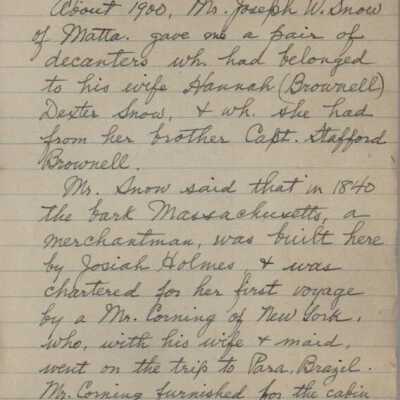 About 1900, Mr. Joseph W. Snow
of Matta. gave me a pair of
decanters wh. had belonged
to his wife Hannah (Brownell)
Dexter Snow, & wh. she had
from her brother Capt. Stafford
Brownell.
Mr. Snow said that in 1840
the bark Massachusetts, a
merchantman, was built here
by Josiah Holmes & was
chartered for her first voyage
by a Mr. Corning of New York,
who, with his wife & maid,
went on the trip to Para, Brazil.
Mr. Corning furnished for the cabin